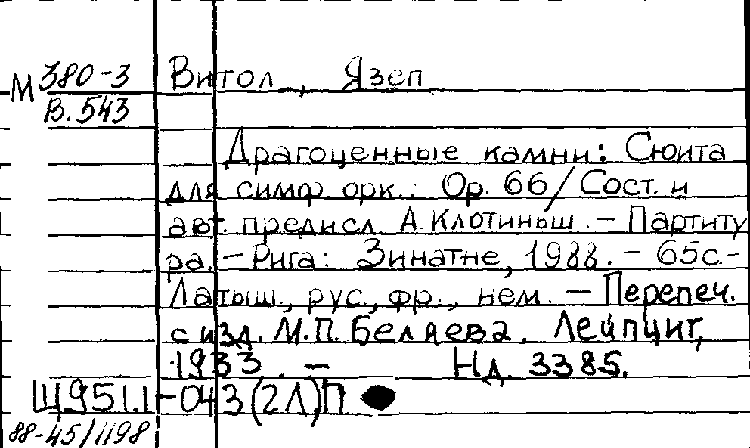 М 380-3 Витол, Язеп
В.543
Драгоценные камни: Сюита
для симф. орк.: Op. 66/Сост. и
авт. предисл. А. Клотиньш. - Партиту
ра. - Рига: Зинатне, 1988. - 65с.-
Латыш., рус., фр., нем. - Перепеч.
с изд. М.П. Беляева. Лейпциг,
1933. - Нд. 3385.
Щ951.1-043(2Л)П
88-45/1198